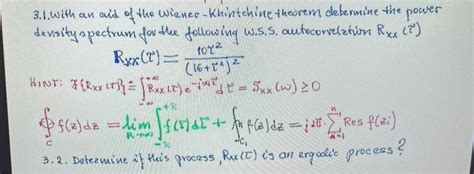 3.1. With an aid of the Wiener-Khintchine theorem determine the power
density spectrum for the following W.S.S. autocorrelation Rxx(τ)
Rxx(τ) = 10τ² / (16+τ²)²
HINT: F{Rxx(τ)} ≜ ∫_{-∞}^{+∞} Rxx(τ) e^{-jωτ} dτ = Sxx(ω) ≥ 0
∮_C f(z)dz = lim_{R→∞} ∫_{-R}^{+R} f(τ)dτ + ∫_{C₁} f(z)dz = j2π·∑_{i=1}^{n} Res f(zi)
3.2. Determine if this process, Rxx(τ) is an ergodic process?